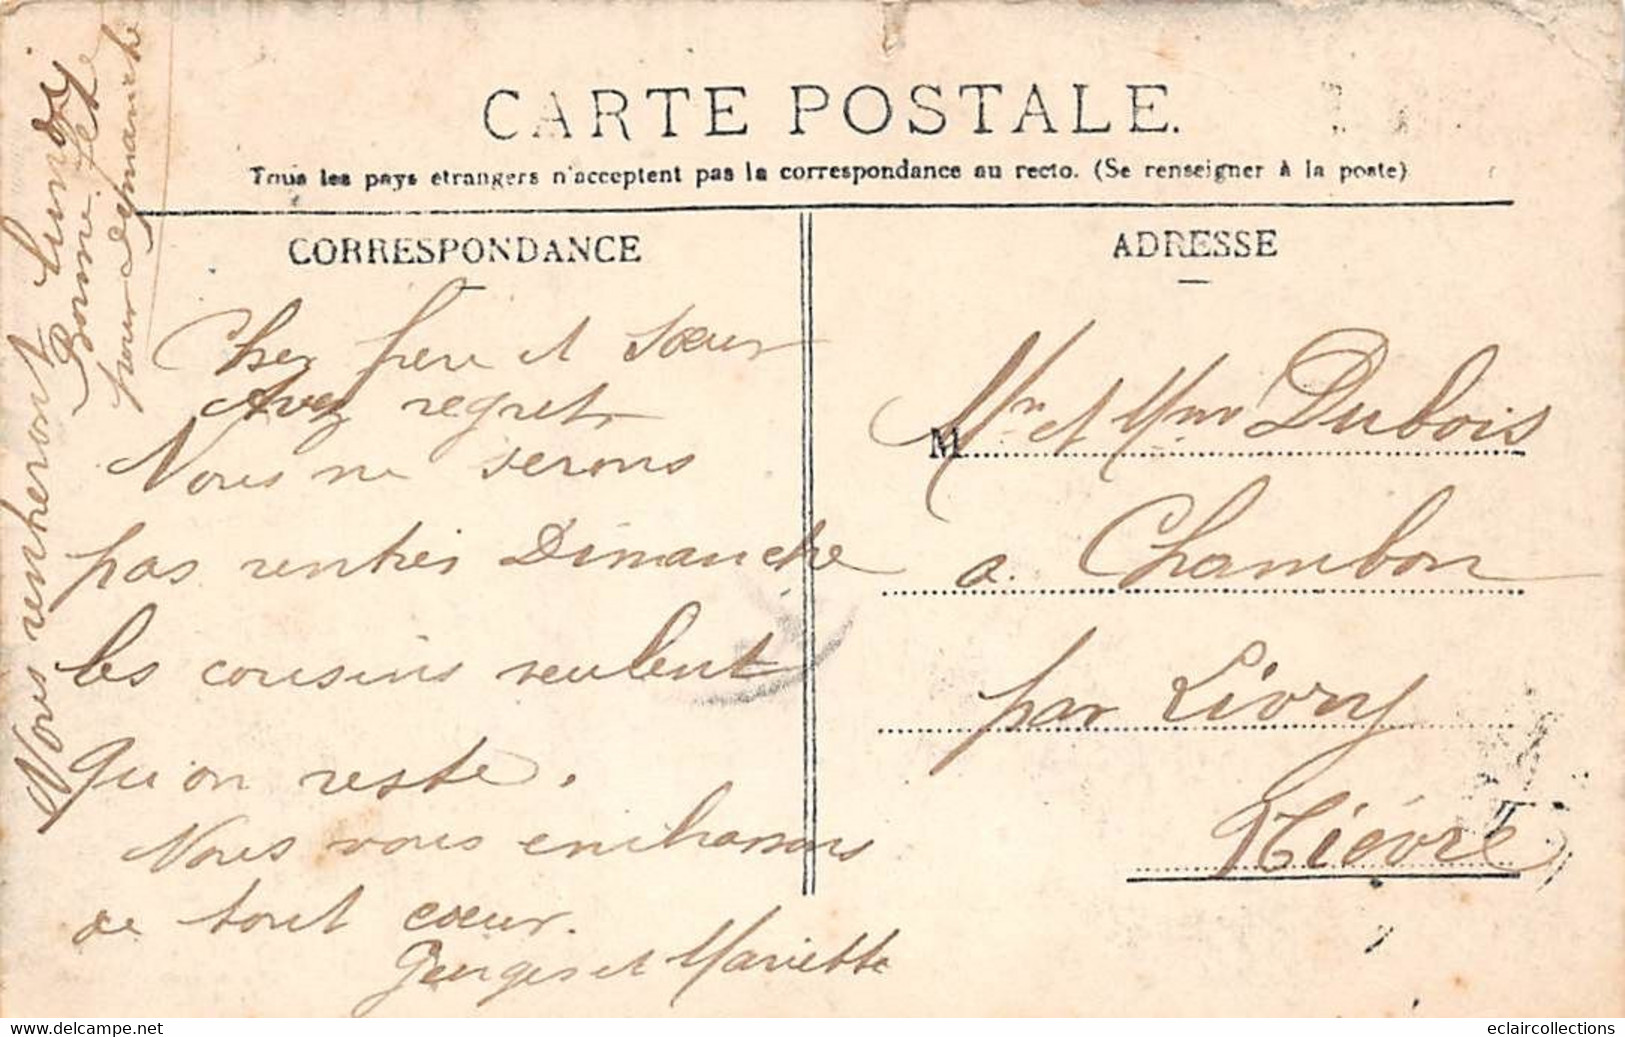 CARTE POSTALE.
Tous les pays etrangers n'acceptent pas la correspondance au recto. (Se renseigner à la poste)
CORRESPONDANCE
Cher frere et sœur
Avec regret
Nous ne serons
pas rentrés Dimanche
les cousins veulent
qu'on reste.
Nous vous embrassons
de tout cœur.
Georges et Mariette
Nous rentrerons lundi
Bonne fête
pour Dimanche
ADRESSE
M Mr et Mme Dubois
a Chambon
par Livry
Nièvre
eclaircollections
www.delcampe.net